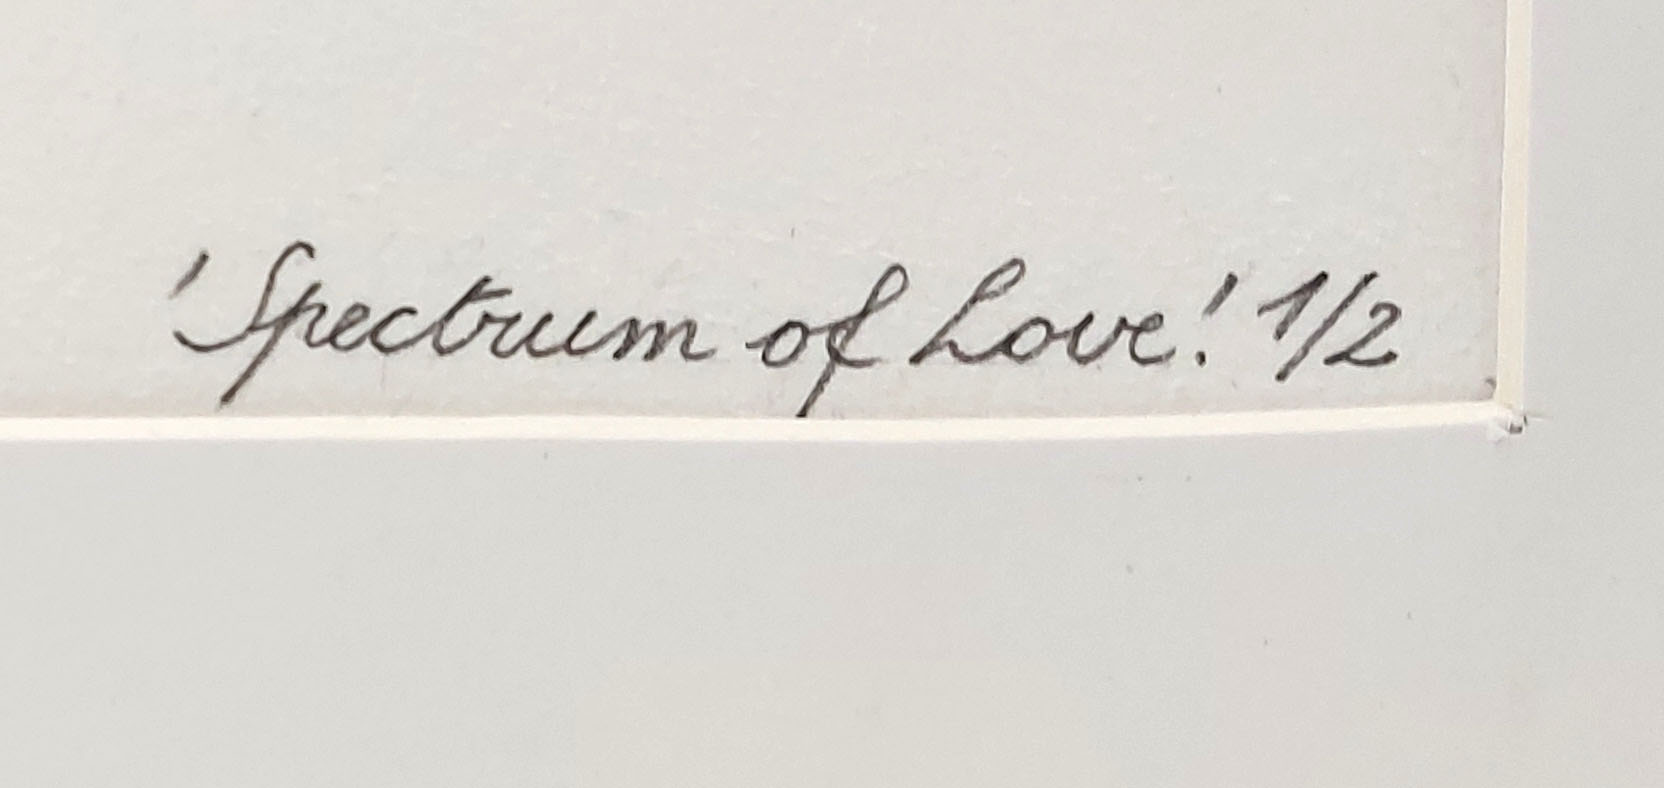 'Spectrum of Love! 1/2